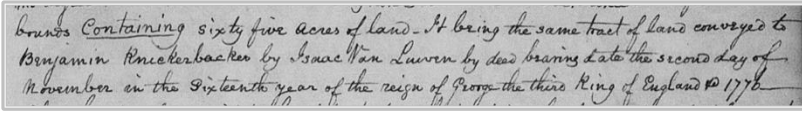 bounds Containing sixty five acres of land - It being the same tract of land conveyed to
Benjamin Knickerbacker by Isaac Van Luwen by deed bearing date the second day of
November in the Sixteenth year of the reign of George the third King of England 1776